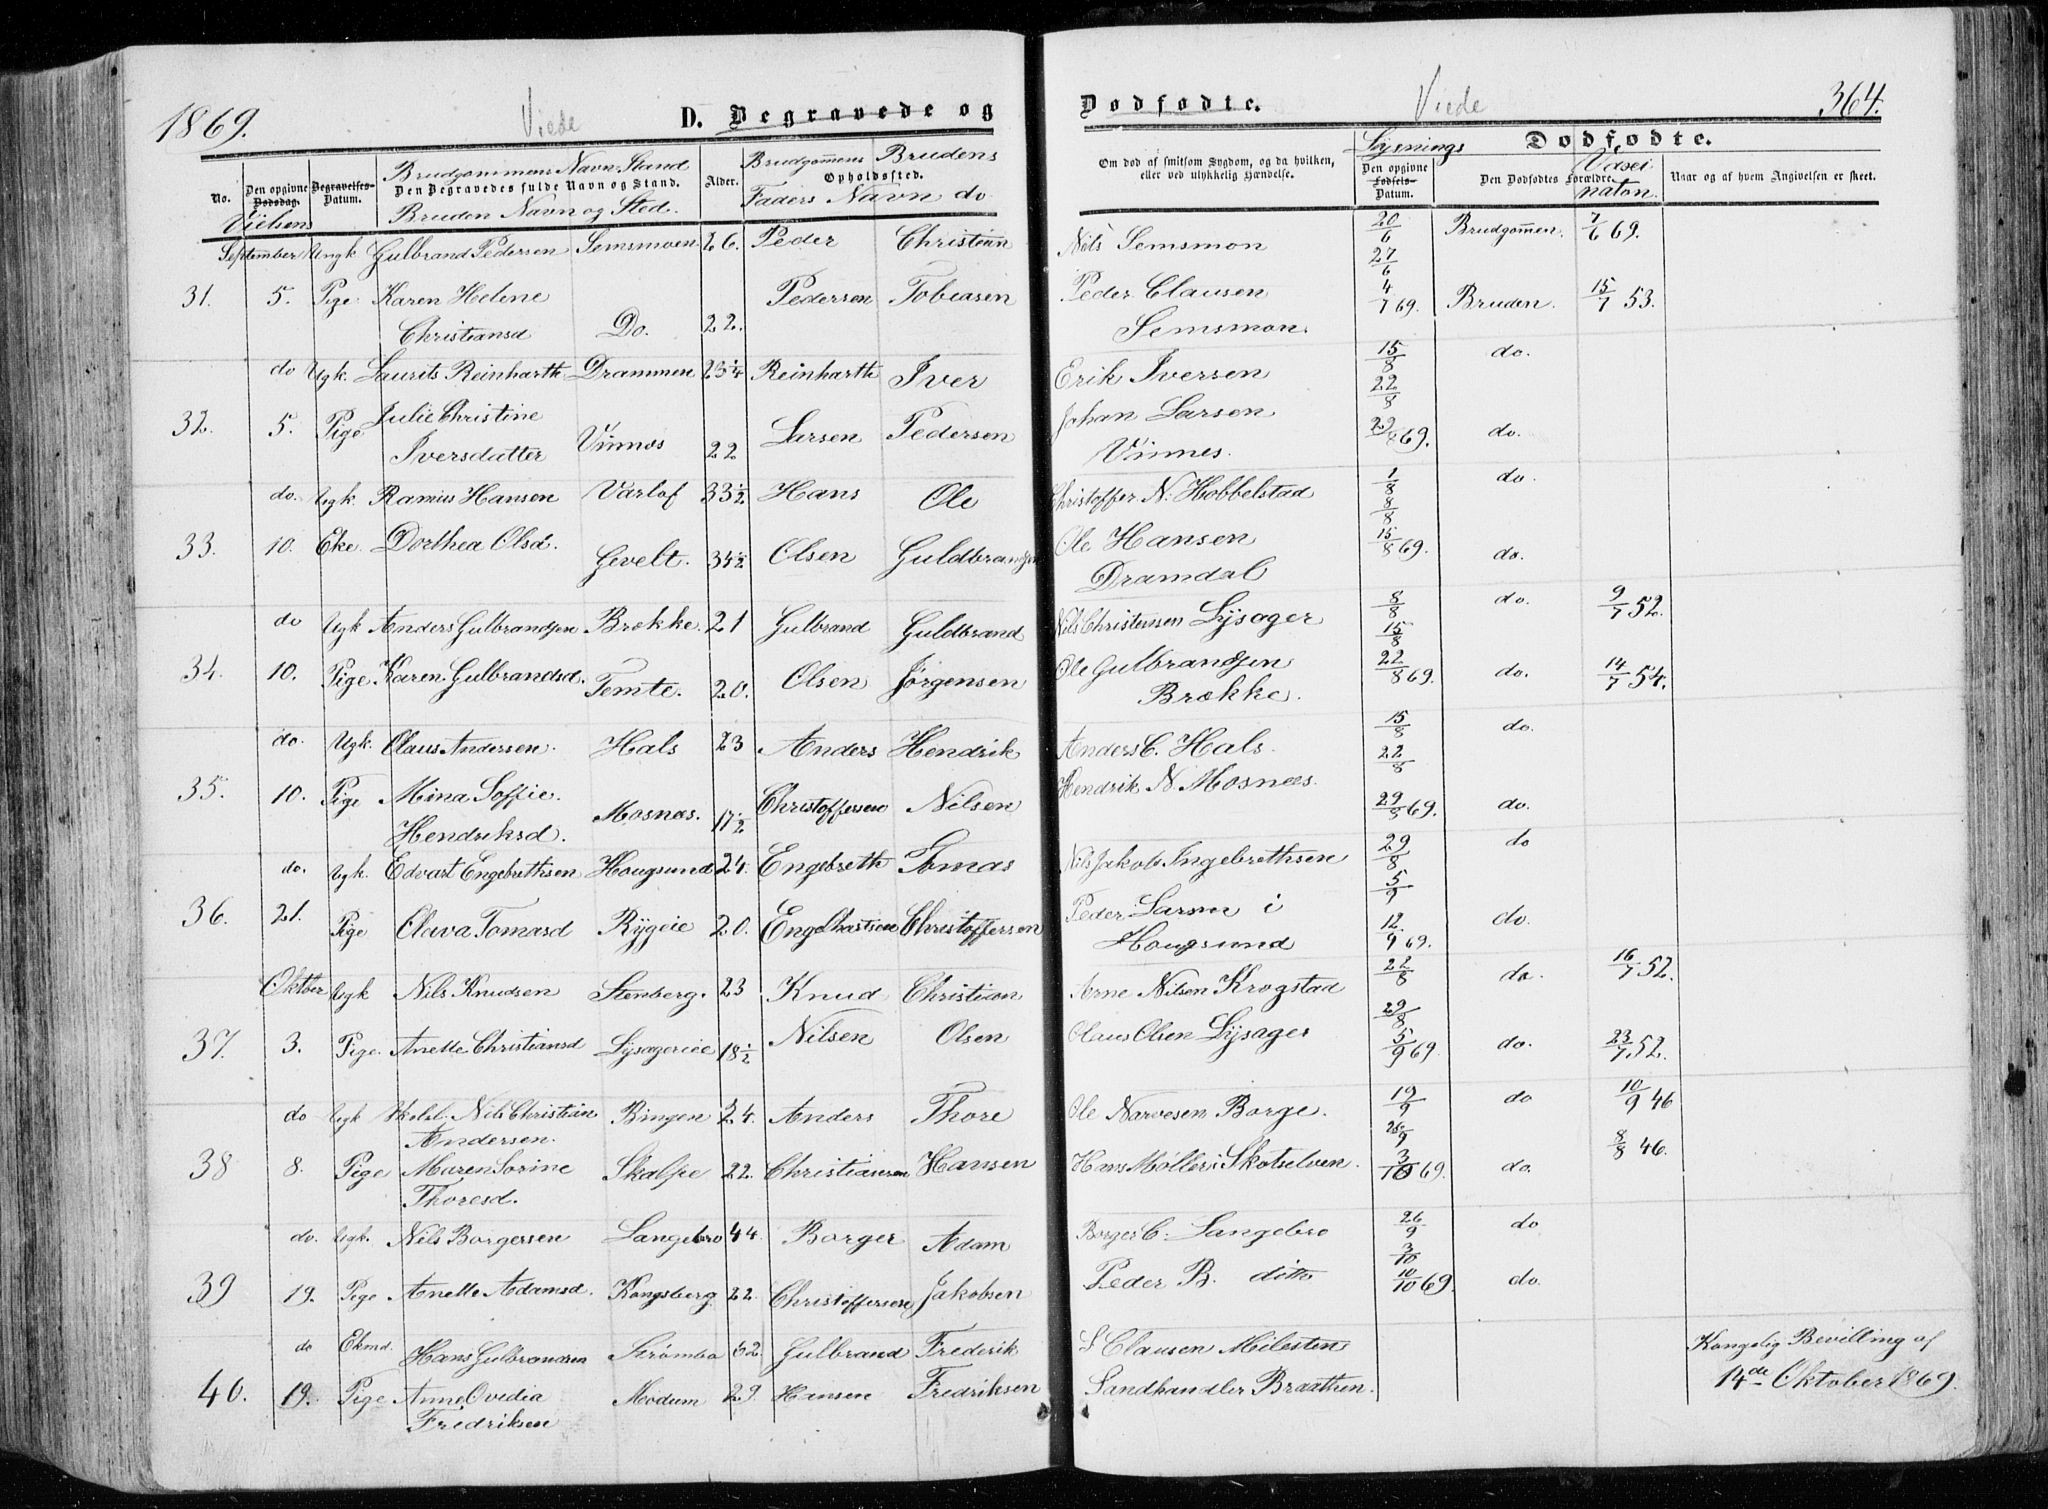 1869. Viede D. Begravede og Dødfødte. Viede 364.
No. Den opgivne Dødsdag. Vielsens Begravelses-Datum. Brudgommens Navn Stand Den Begravedes fulde Navn og Stand. Bruden Navn og Sted. Alder. Brudgommens Brudens Opholdssted. Faders Navn do
Om død af smitsom Sygdom, og da hvilken, eller ved ulykkelig Hændelse. Lysnings Den opgivne Fødsels-Datum. Dødfødte. Den Dødfødtes Forældre. Naar og af hvem Angivelsen er skeet.
September Ungk Gulbrand Pedersen Semsmoen 26. Peder Christian Nils Semsmon 20/6 Brudgommen. 7/6 69.
27/6
31. 5. Pige Karen Helene Pedersen Tobiasen Peder Clausen 4/7 69. Bruden. 15/7 53.
Christiansd Do. 22. Semsmon.
do Ugk. Laurits Reinharth Drammen 23 1/4 Reinharth Iver Erik Iversen 15/8 do.
22/8
32. 5. Pige Julie Christine Larsen Pedersen Johan Larsen 29/8 69. do.
Iversdatter Vinnes 22 Vinnes.
do. Ugk. Hansen Varlof 33 1/2 Hans Ole Christoffer N. Hobbelstad 1/8 do.
8/8
33. 10. Eke. Dorthea Olsd. Gevelt. 34 1/2 Olsen Guldbrandsen Ole Hansen 15/8 69. do.
Dramdal
do Ugk Anders Gulbrandsen Brække. 21 Gulbrand Guldbrand Nils Christensen Lysager 8/8 do. 9/7 52.
15/8
34. 10. Pige Karen Gulbrandsd. Temte. 20. Olsen Jørgensen Ole Gulbrandsen 22/8 69. do. 14/7 54.
Brække.
do. Ugk. Olaus Andersen. Hals 23 Anders Hendrik Anders C. Hals. 15/8 do.
22/8
35. 10. Pige Mina Soffie. Mosnæs. 17 1/2 Christoffersen Nilsen Hendrik N. Mosnæs. 29/8 69. do.
Hendriksd.
do. Ugk. Edvart Engebrethsen Hougsund 24. Engebreth Tomas Nils Jakob Ingebrethsen 29/8 do
5/9
36. 21. Pige Olava Tomasd Rygeie 20. Engelhartsen Christoffersen Peder Larsen i 12/9 69. do.
Hougsund
Oktber Ugk Nils Knudsen Stenberg. 23 Knud Christian Arne Nilsen Krogstad 22/8 do. 16/7 52.
29/8
37. 3. Pige. Anette Christiansd Lysagereie 18 1/2 Nilsen Olsen Olaus Olsen Lysager 5/9 69. do. 23/7 52.
do Ugk Nils Christian Bingen 24. Anders Thore Ole Narvesen Borge. 19/9 do 10/9 46
Andersen. 26/9
38 8. Pige Maren Sorine Skalsie 22. Christiansen Hansen Hans Møller i Skotselven. 3/10 69. do. 8/8 46.
Thoresd.
do. Ugk. Nils Borgersen Langebro 44. Borger Adam Borger C. Langebro 26/9 do
3/10
39 19. Pige Anette Adamsd. Kongsberg 22. Christoffersen Jakobsen Peder B. ditto 10/10 69. do.
do Ekmd. Hans Gulbrandsen Strømbo 62. Gulbrand Frederik S Clausen Milesten Kongelig Bevilling af
40. 19. Pige Anne Ovidia Modum 29. Hansen Fredriksen Sandhandler Braathen. 14de Oktober 1869.
Fredriksen